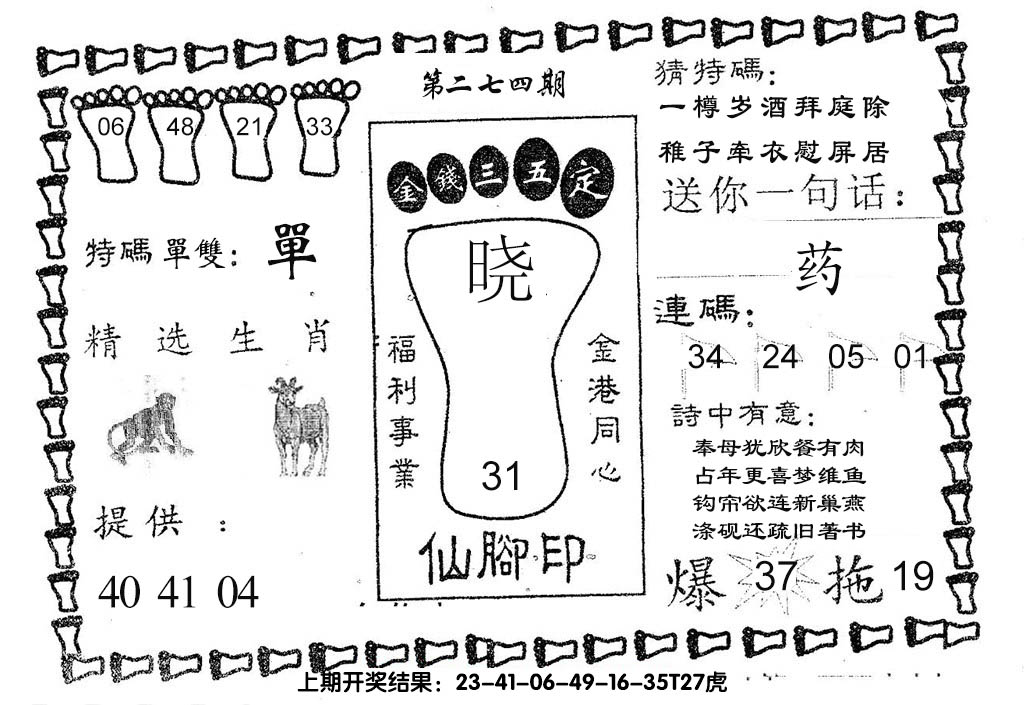 第二七四期
06 48 21 33
特碼單雙：單
精选生肖
提供：
40 41 04
金錢三五定
晓
福利事業
金港同心
31
仙腳印
猜特碼：
一樽岁酒拜庭除
稚子牵衣慰屏居
送你一句话：
药
連碼：
34 24 05 01
詩中有意：
奉母犹欣餐有肉
占年更喜梦维鱼
钩帘欲连新巢燕
涤砚还疏旧著书
爆 37 拖 19
上期开奖结果：23-41-06-49-16-35T27虎